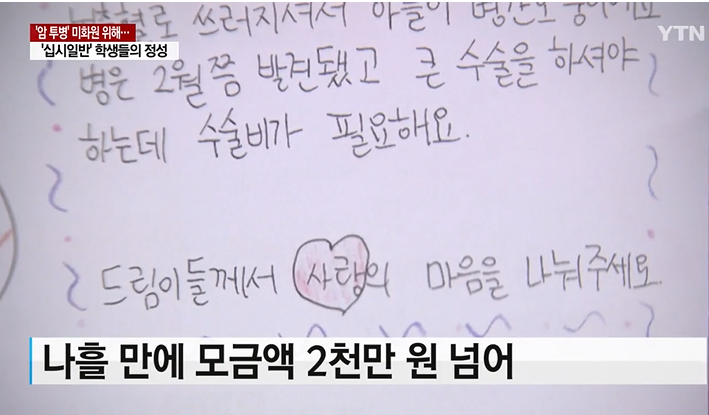 '암 투병' 미화원 위해…
'십시일반' 학생들의 정성
YTN
쓰러지셔서 아들이
병은 2월쯤 발견됐고 큰 수술을 하셔야
하는데 수술비가 필요해요.
드림이들께서 사랑의 마음을 나눠주세요.
나흘 만에 모금액 2천만 원 넘어